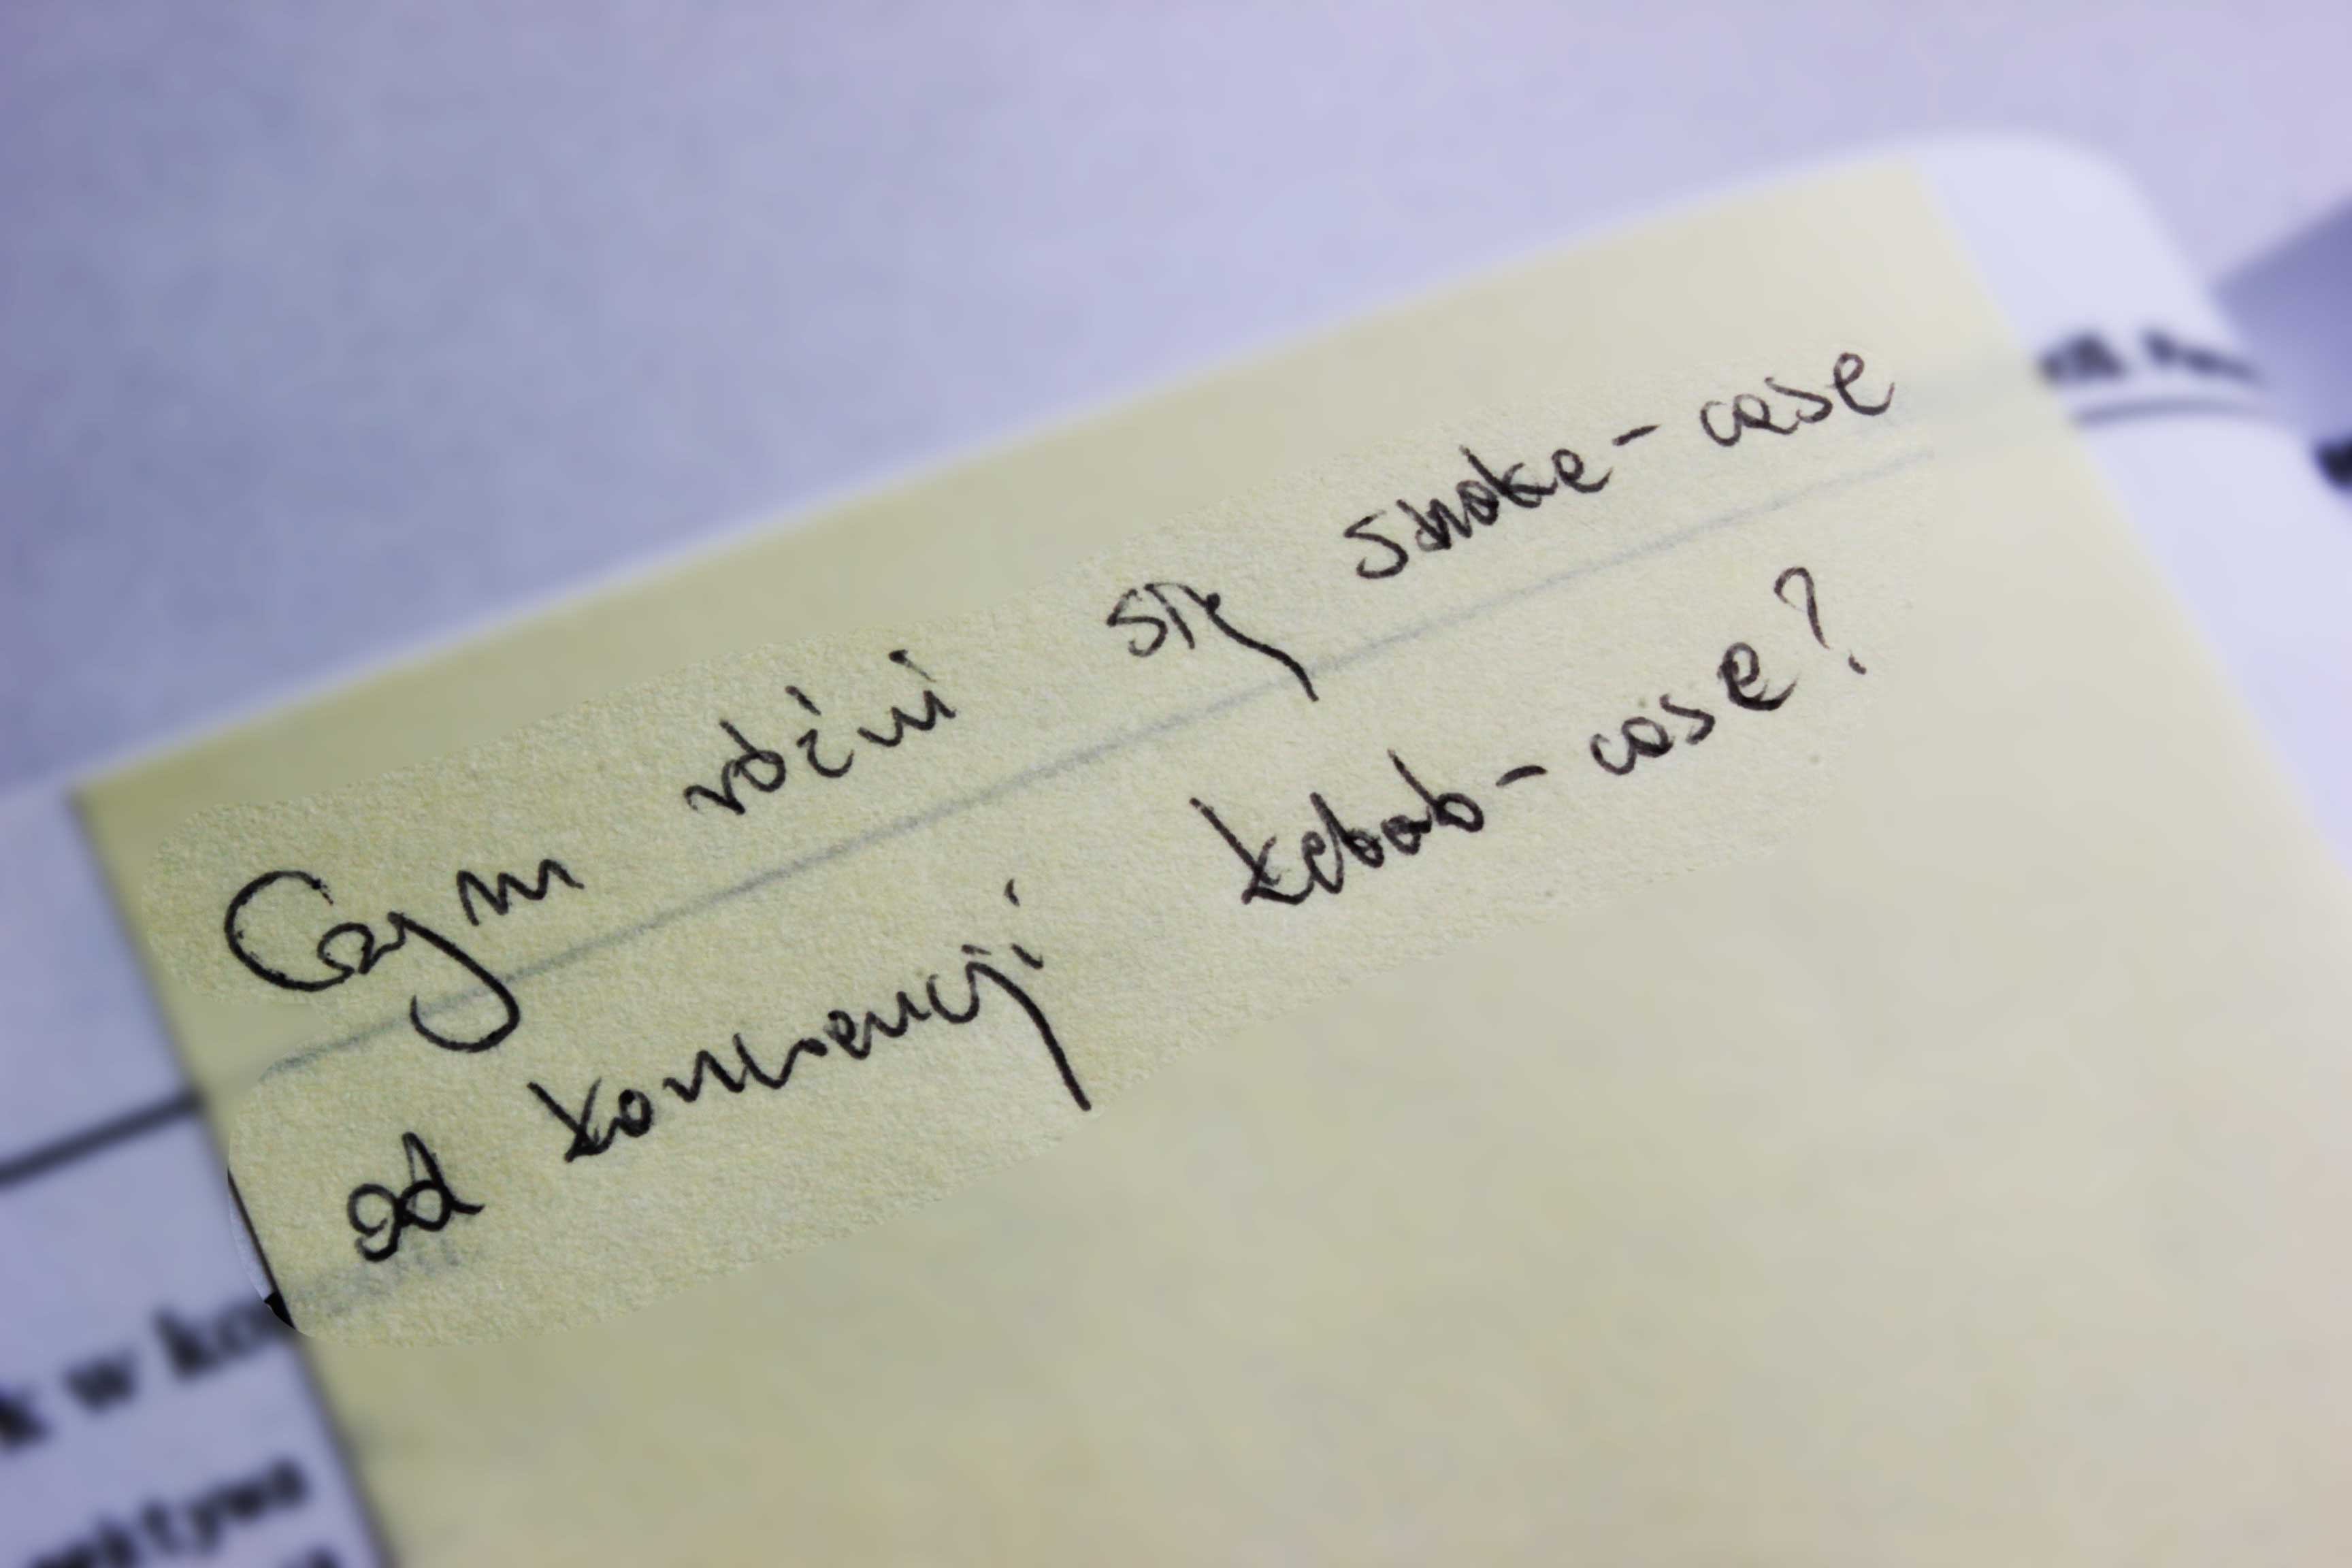 Czym różni się snake-case
od konwencji kebab-case?
k w ko